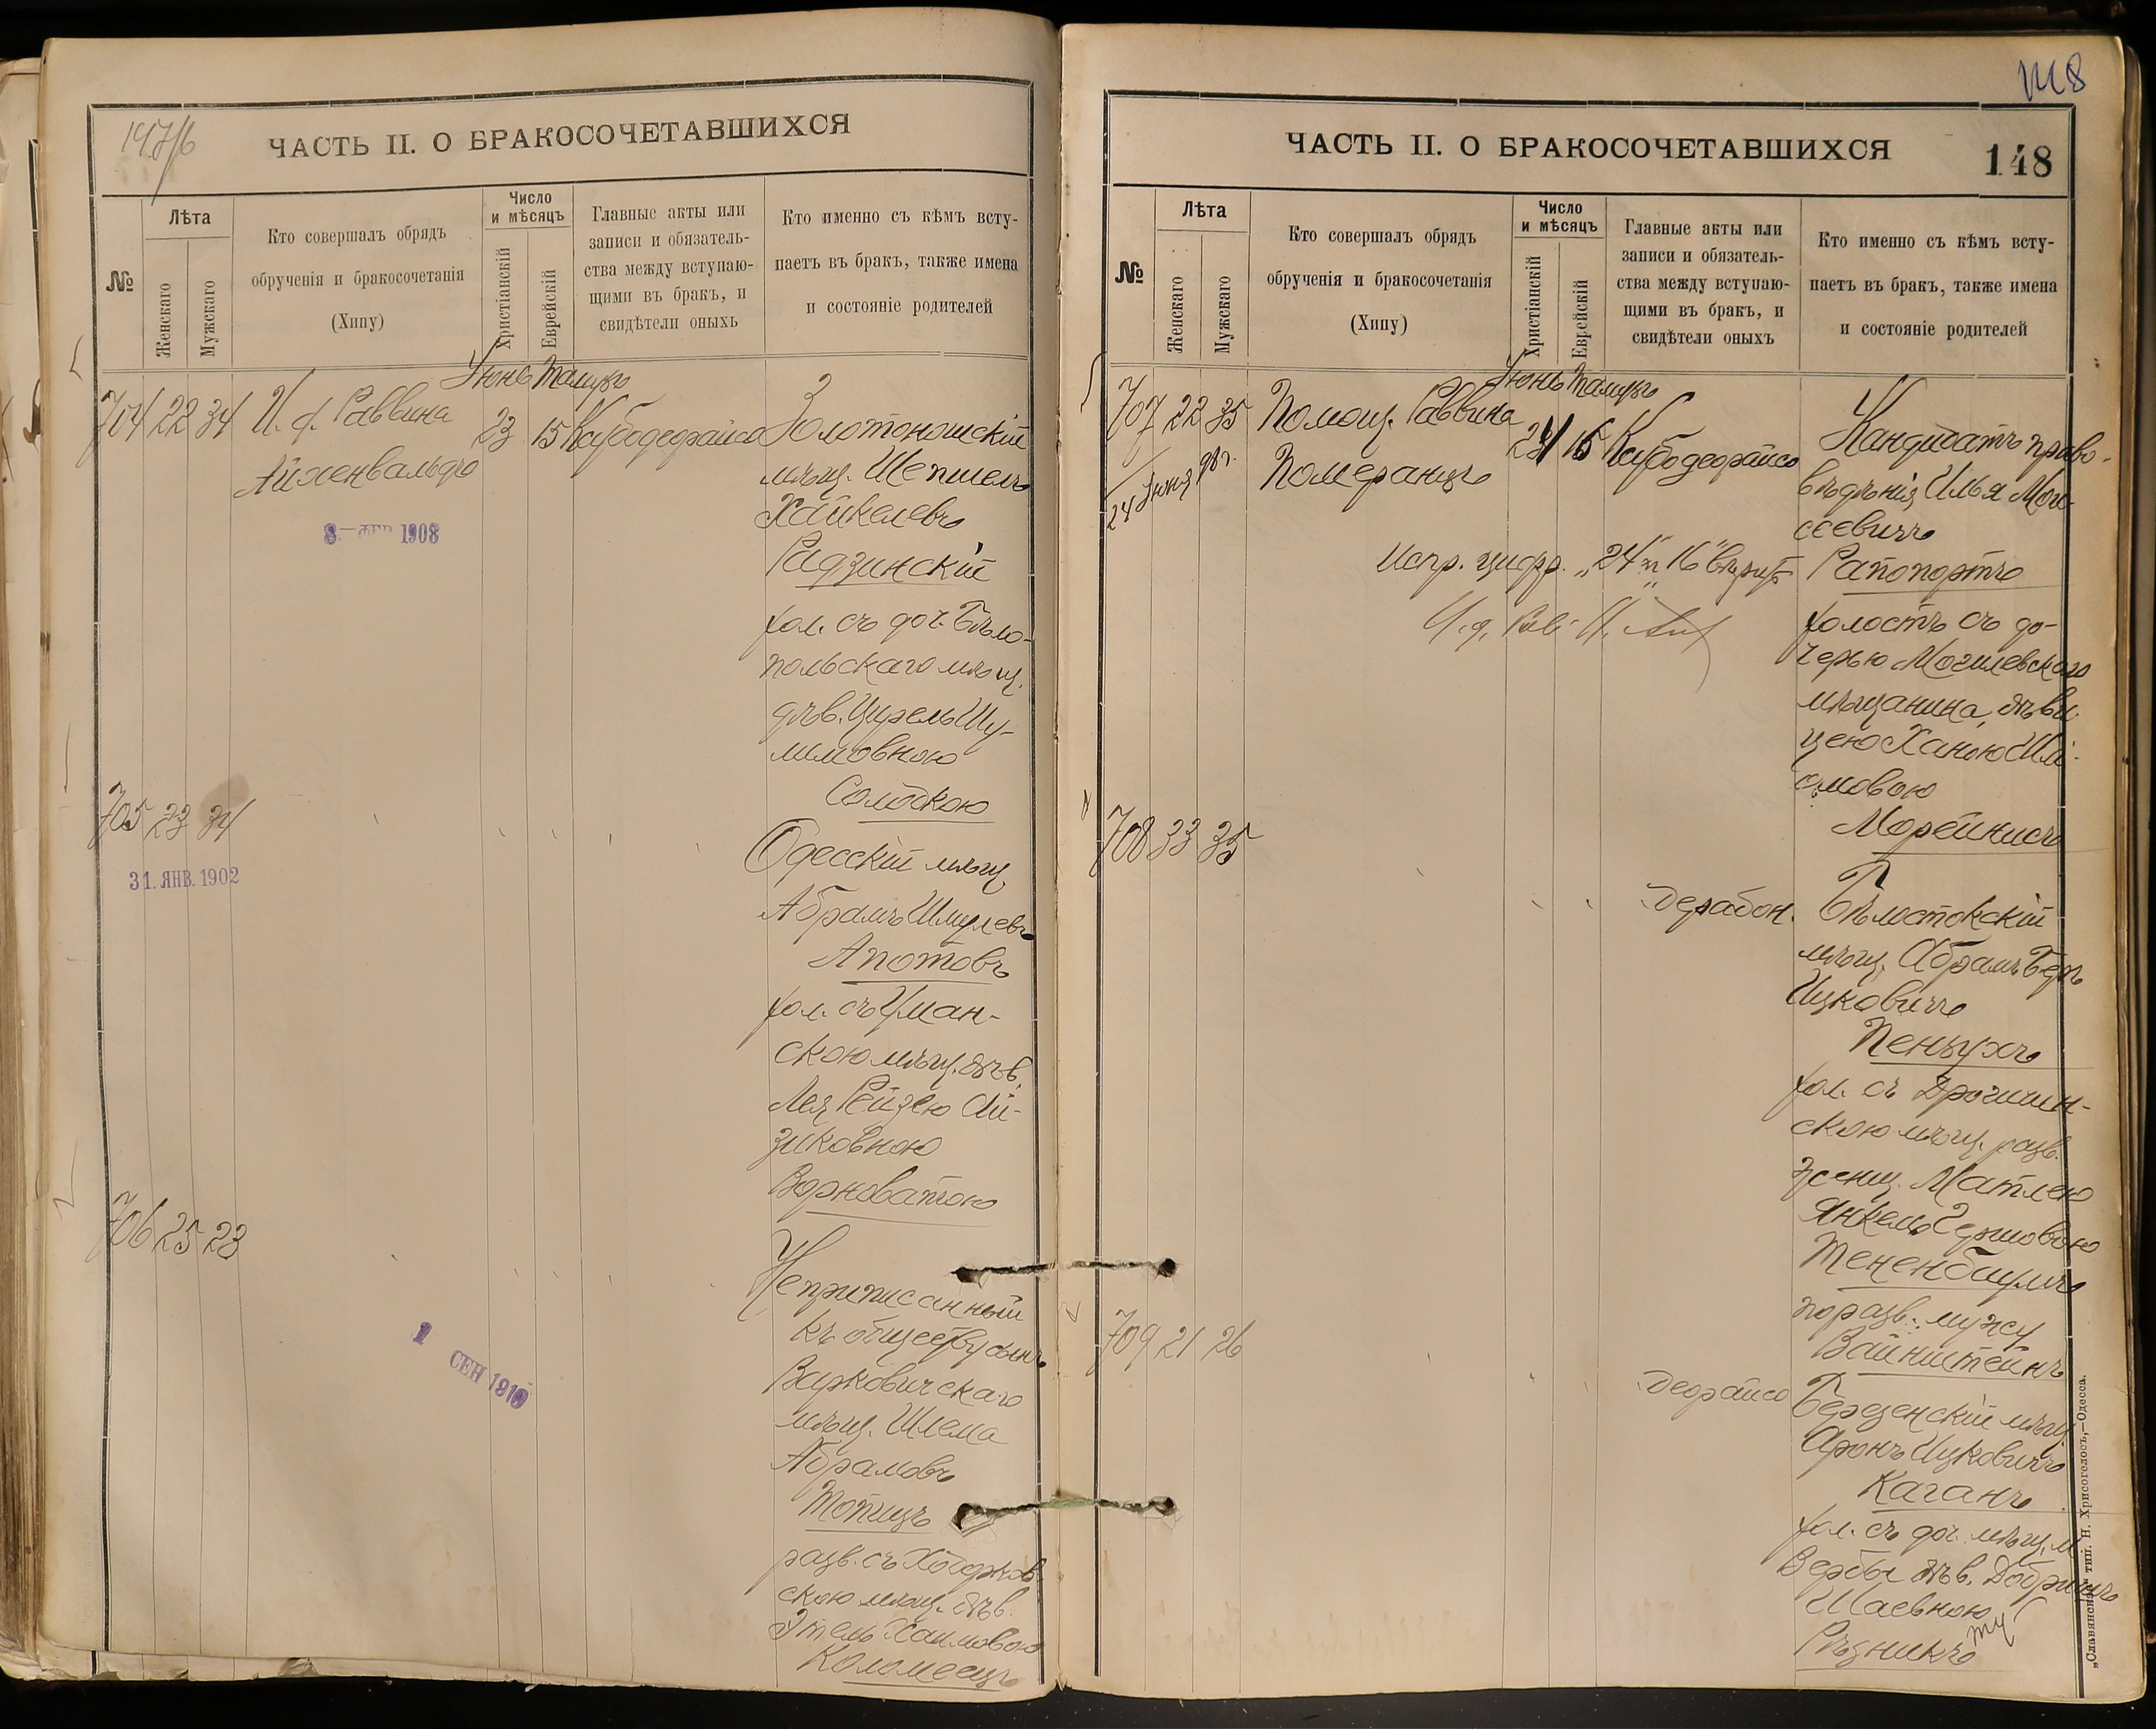 147/б
ЧАСТЬ II. О БРАКОСОЧЕТАВШИХСЯ
№
Лѣта
Женскаго
Мужскаго
Кто совершалъ обрядъ
обрученія и бракосочетанія
(Хипу)
Число
и мѣсяцъ
Христіанскій
Еврейскій
Главные акты или
записи и обязатель-
ства между вступаю-
щими въ бракъ, и
свидѣтели оныхъ
Кто именно съ кѣмъ всту-
паетъ въ бракъ, также имена
и состояніе родителей
Іюнь Тамузъ
704 22 34 И. д. Раввина 23 15 Ксубодеорайсо Золотоношскій
Айхенвальдъ
мѣщ. Шепшелъ
Хайкелевъ
8 - ФЕВ 1908
Радзинскій
хол. съ доч. Бѣло-
польскаго мѣщ.
дѣв. Цирель Шу-
лимовною
Солодкою
705 23 34
31. ЯНВ. 1902
Одесскій мѣщ.
Абрамъ Шмулевъ
Апотовъ
хол. съ Уман-
скою мѣщ. дѣв.
Лея Рейзею Ай-
зиковною
Ворноватою
706 25 23
Неприписанный
къ обществу сынъ
1 СЕН 1910
Варковичскаго
мѣщ. Шлема
Абрамовъ
Топицъ
разв. съ Ходорков-
скою мѣщ. дѣв.
Этель Хаимовою
Коломеецъ
148
ЧАСТЬ II. О БРАКОСОЧЕТАВШИХСЯ
148
№
Лѣта
Женскаго
Мужскаго
Кто совершалъ обрядъ
обрученія и бракосочетанія
(Хипу)
Число
и мѣсяцъ
Христіанскій
Еврейскій
Главные акты или
записи и обязатель-
ства между вступаю-
щими въ бракъ, и
свидѣтели оныхъ
Кто именно съ кѣмъ всту-
паетъ въ бракъ, также имена
и состояніе родителей
Іюнь Тамузъ
707 22 35 Помощ. Раввина 24 16 Ксубодеорайсо Кандидатъ право-
24 Іюня
Померанцъ
вѣдѣнія Илья Мои-
сеевичъ
Испр. цифр. „24" и „16" вѣрить
Рапопортъ
И. д. Рав.
холостъ съ до-
черью Могилевскаго
мѣщанина, дѣви-
цею Ханою Шлі-
омовою
Морейнисъ
708 33 35
Дерабон. Бѣлостокскій
мѣщ. Абрамъ Беръ
Ицковичъ
Пеньухъ
хол. съ Дрогичин-
скою мѣщ. разв.
женщ. Матлею
Янкель Гершовою
Тененбаумъ
по разв. мужу
Вайнштейнъ
709 21 26
Деорайсо Березенскій мѣщ.
Аронъ Ицковичъ
Каганъ
хол. съ доч. мѣщ. м.
Вербы дѣв. Добришъ
Шаевною
Рѣзникъ
„Славянская" тип. Н. Хрисогелосъ,—Одесса.